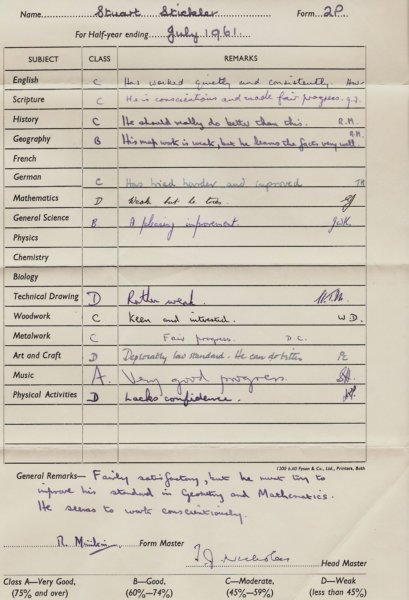 Name Stuart Stickler Form 2P.
For Half-year ending July 1961
SUBJECT CLASS REMARKS
English C Has worked quietly and consistently.
Scripture C He is conscientious and made fair progress.
History C He should really do better than this. R.M.
Geography B His map work is weak, but he learns the facts very well. R.M.
French
German C Has tried harder and improved
Mathematics D Weak but he tries.
General Science B. A pleasing improvement.
Physics
Chemistry
Biology
Technical Drawing D Rather weak.
Woodwork C Keen and interested. W D.
Metalwork C Fair progress. D C.
Art and Craft D Deplorably low standard. He can do better
Music A. Very good progress.
Physical Activities D Lacks confidence.
1200 6.60 Fyson & Co., Ltd., Printers, Bath
General Remarks— Fairly satisfactory, but he must try to
improve his standard in Geometry and Mathematics.
He seems to work conscientiously.
R. Form Master
Nicholas Head Master
Class A—Very Good, B—Good, C—Moderate, D—Weak
(75% and over) (60%—74%) (45%—59%) (less than 45%)